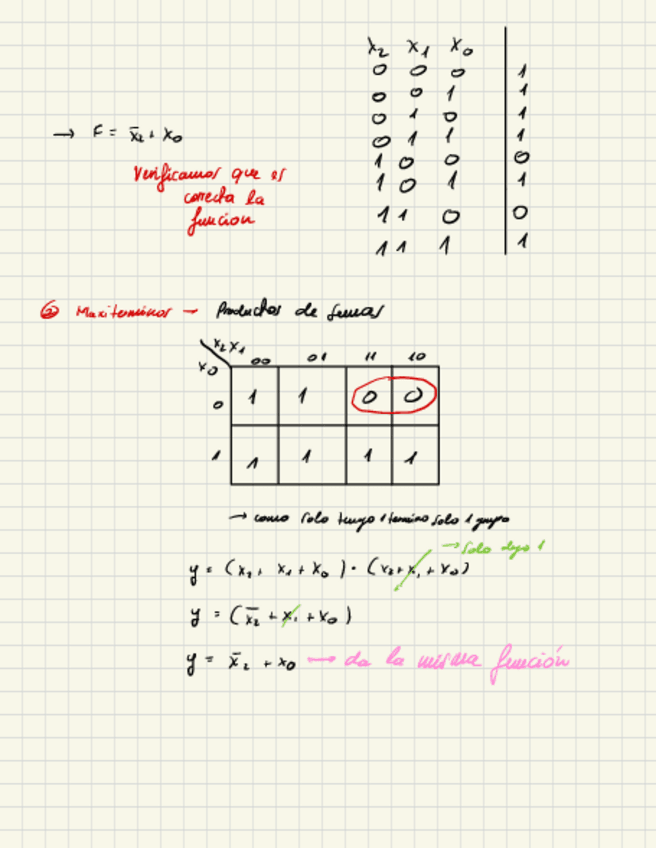 x₂ x₁ x₀
0 0 0 | 1
0 0 1 | 1
0 1 0 | 1
0 1 1 | 1
1 0 0 | 0
1 0 1 | 1
1 1 0 | 0
1 1 1 | 1
→ F = x̄₂ + x₀
Verificamos que es
correcta la
funcion
② Maxiterminos — Productos de sumas
x₂x₁
x₀
00 01 11 10
0 1 1 0 0
1 1 1 1 1
→ como solo tengo 1 termino solo 1 grupo
→ solo dejo 1
y = (x₂ + x₁ + x₀) · (x₂ + x₁ + x₀)
y = (x̄₂ + x₁ + x₀)
y = x̄₂ + x₀ → da la misma función